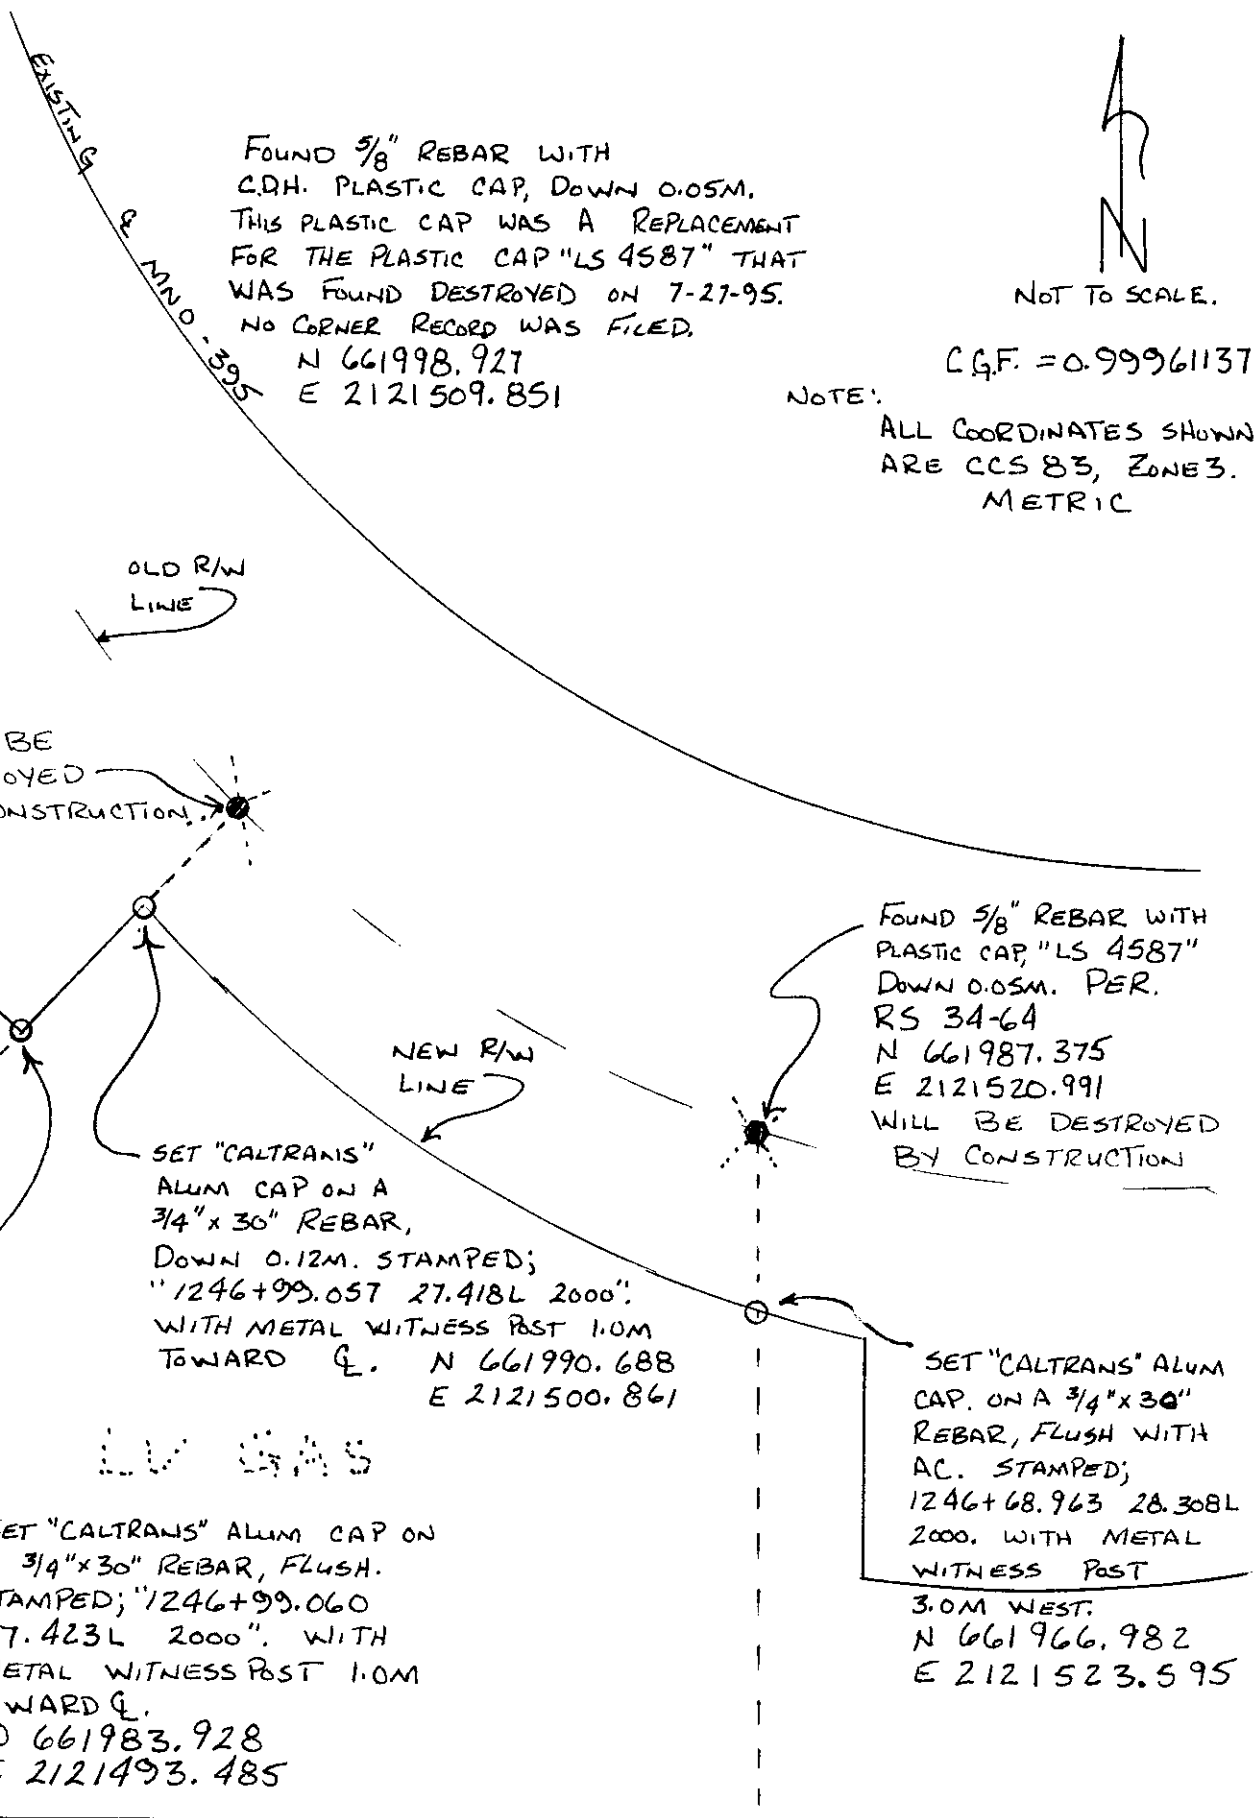 EXISTING ℄ MNO-395
FOUND 5/8" REBAR WITH
C.D.H. PLASTIC CAP, DOWN 0.05M.
THIS PLASTIC CAP WAS A REPLACEMENT
FOR THE PLASTIC CAP "LS 4587" THAT
WAS FOUND DESTROYED ON 7-27-95.
NO CORNER RECORD WAS FILED.
N 661998.927
E 2121509.851
N
NOT TO SCALE.
C.G.F. = 0.99961137
NOTE:
ALL COORDINATES SHOWN
ARE CCS 83, ZONE 3.
METRIC
OLD R/W
LINE
BE
OYED
ONSTRUCTION.
FOUND 5/8" REBAR WITH
PLASTIC CAP, "LS 4587"
DOWN 0.05M. PER.
RS 34-64
N 661987.375
E 2121520.991
WILL BE DESTROYED
BY CONSTRUCTION
NEW R/W
LINE
SET "CALTRANS"
ALUM CAP ON A
3/4" x 30" REBAR,
DOWN 0.12M. STAMPED;
"1246+99.057 27.418L 2000".
WITH METAL WITNESS POST 1.0M
TOWARD ℄. N 661990.688
E 2121500.861
SET "CALTRANS" ALUM
CAP. ON A 3/4" x 30"
REBAR, FLUSH WITH
AC. STAMPED;
1246+68.963 28.308L
2000. WITH METAL
WITNESS POST
3.0M WEST.
N 661966.982
E 2121523.595
LV GAS
ET "CALTRANS" ALUM CAP ON
3/4" x 30" REBAR, FLUSH.
TAMPED; "1246+99.060
7.423L 2000". WITH
ETAL WITNESS POST 1.0M
WARD ℄.
661983.928
2121493.485